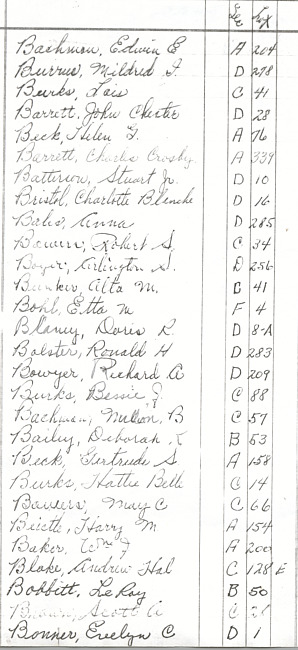 Sec Lot
Bachman, Edwin E A 204
Burrus, Mildred J. D 278
Burks, Lois C 41
Barrett, John Chester D 28
Beck, Helen G. A 76
Barrett, Charles Crosby A 339
Batterson, Stuart Jr. D 10
Bristol, Charlotte Blanche D 16
Anna D 285
Bowers, Robert S. C 34
Arlington S. D 256
Bunker, Alta M. C 41
Bohl, Etta M F 4
Blaney, Doris R D 8-A
Bolster, Ronald H D 283
Bowyer, Richard A D 209
Burks, Bessie J. C 88
Bachman, B C 57
Bailey, Deborah K B 53
Beck, Gertrude S A 158
Burks, Hattie Belle C 14
Bowers, May C C 66
Harry M A 154
Baker, Wm J A 200
Blake, Andrew Hal C 128 E
Bobbitt, LeRoy B 50
Brown, Scott A C
Bonner, Evelyn C D 1